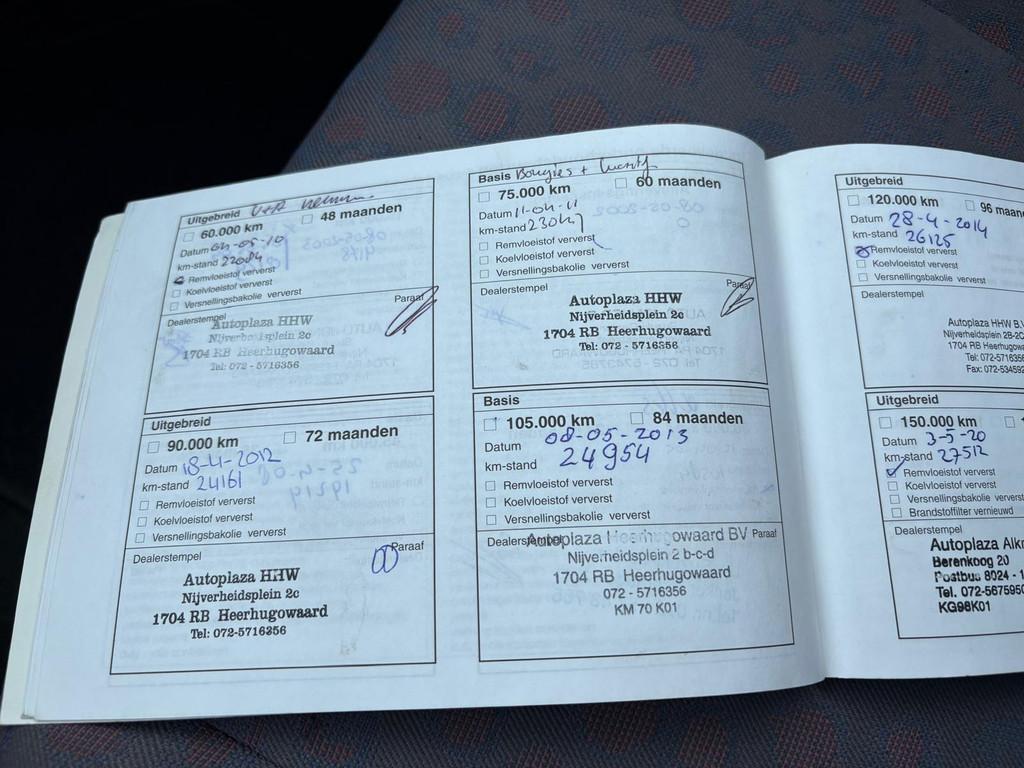 Uitgebreid
60.000 km 48 maanden
Datum 04-05-10
km-stand 22084
Remvloeistof ververst
Koelvloeistof ververst
Versnellingsbakolie ververst
Dealerstempel Paraaf
Autoplaza HHW
Nijverheidsplein 2c
1704 RB Heerhugowaard
Tel: 072 - 5716356
Uitgebreid
90.000 km 72 maanden
Datum 18-4-2012
km-stand 24161
Remvloeistof ververst
Koelvloeistof ververst
Versnellingsbakolie ververst
Dealerstempel Paraaf
Autoplaza HHW
Nijverheidsplein 2c
1704 RB Heerhugowaard
Tel: 072-5716356
Basis Bougies +
75.000 km 60 maanden
Datum 11-04-11
km-stand
Remvloeistof ververst
Koelvloeistof ververst
Versnellingsbakolie ververst
Dealerstempel Paraaf
Autoplaza HHW
Nijverheidsplein 2c
1704 RB Heerhugowaard
Tel: 072 - 5716356
Basis
105.000 km 84 maanden
Datum 08-05-2013
km-stand 24954
Remvloeistof ververst
Koelvloeistof ververst
Versnellingsbakolie ververst
Dealerstempel Paraaf
Autoplaza Heerhugowaard BV
Nijverheidsplein 2 b-c-d
1704 RB Heerhugowaard
072 - 5716356
KM 70 K01
Uitgebreid
120.000 km 96 maan
Datum 28-4-2014
km-stand 26125
Remvloeistof ververst
Koelvloeistof ververst
Versnellingsbakolie ververst
Dealerstempel
Autoplaza HHW B.V
Nijverheidsplein 2B-2C
1704 RB Heerhugowa
Tel: 072-571635
Fax: 072-534592
Uitgebreid
150.000 km
Datum 3-5-20
km-stand 27512
Remvloeistof ververst
Koelvloeistof ververst
Versnellingsbakolie ververst
Brandstoffilter vernieuwd
Dealerstempel
Autoplaza Alk
Berenkoog 20
Postbus 8024 - 1
Tel. 072-5675950
KG98K01